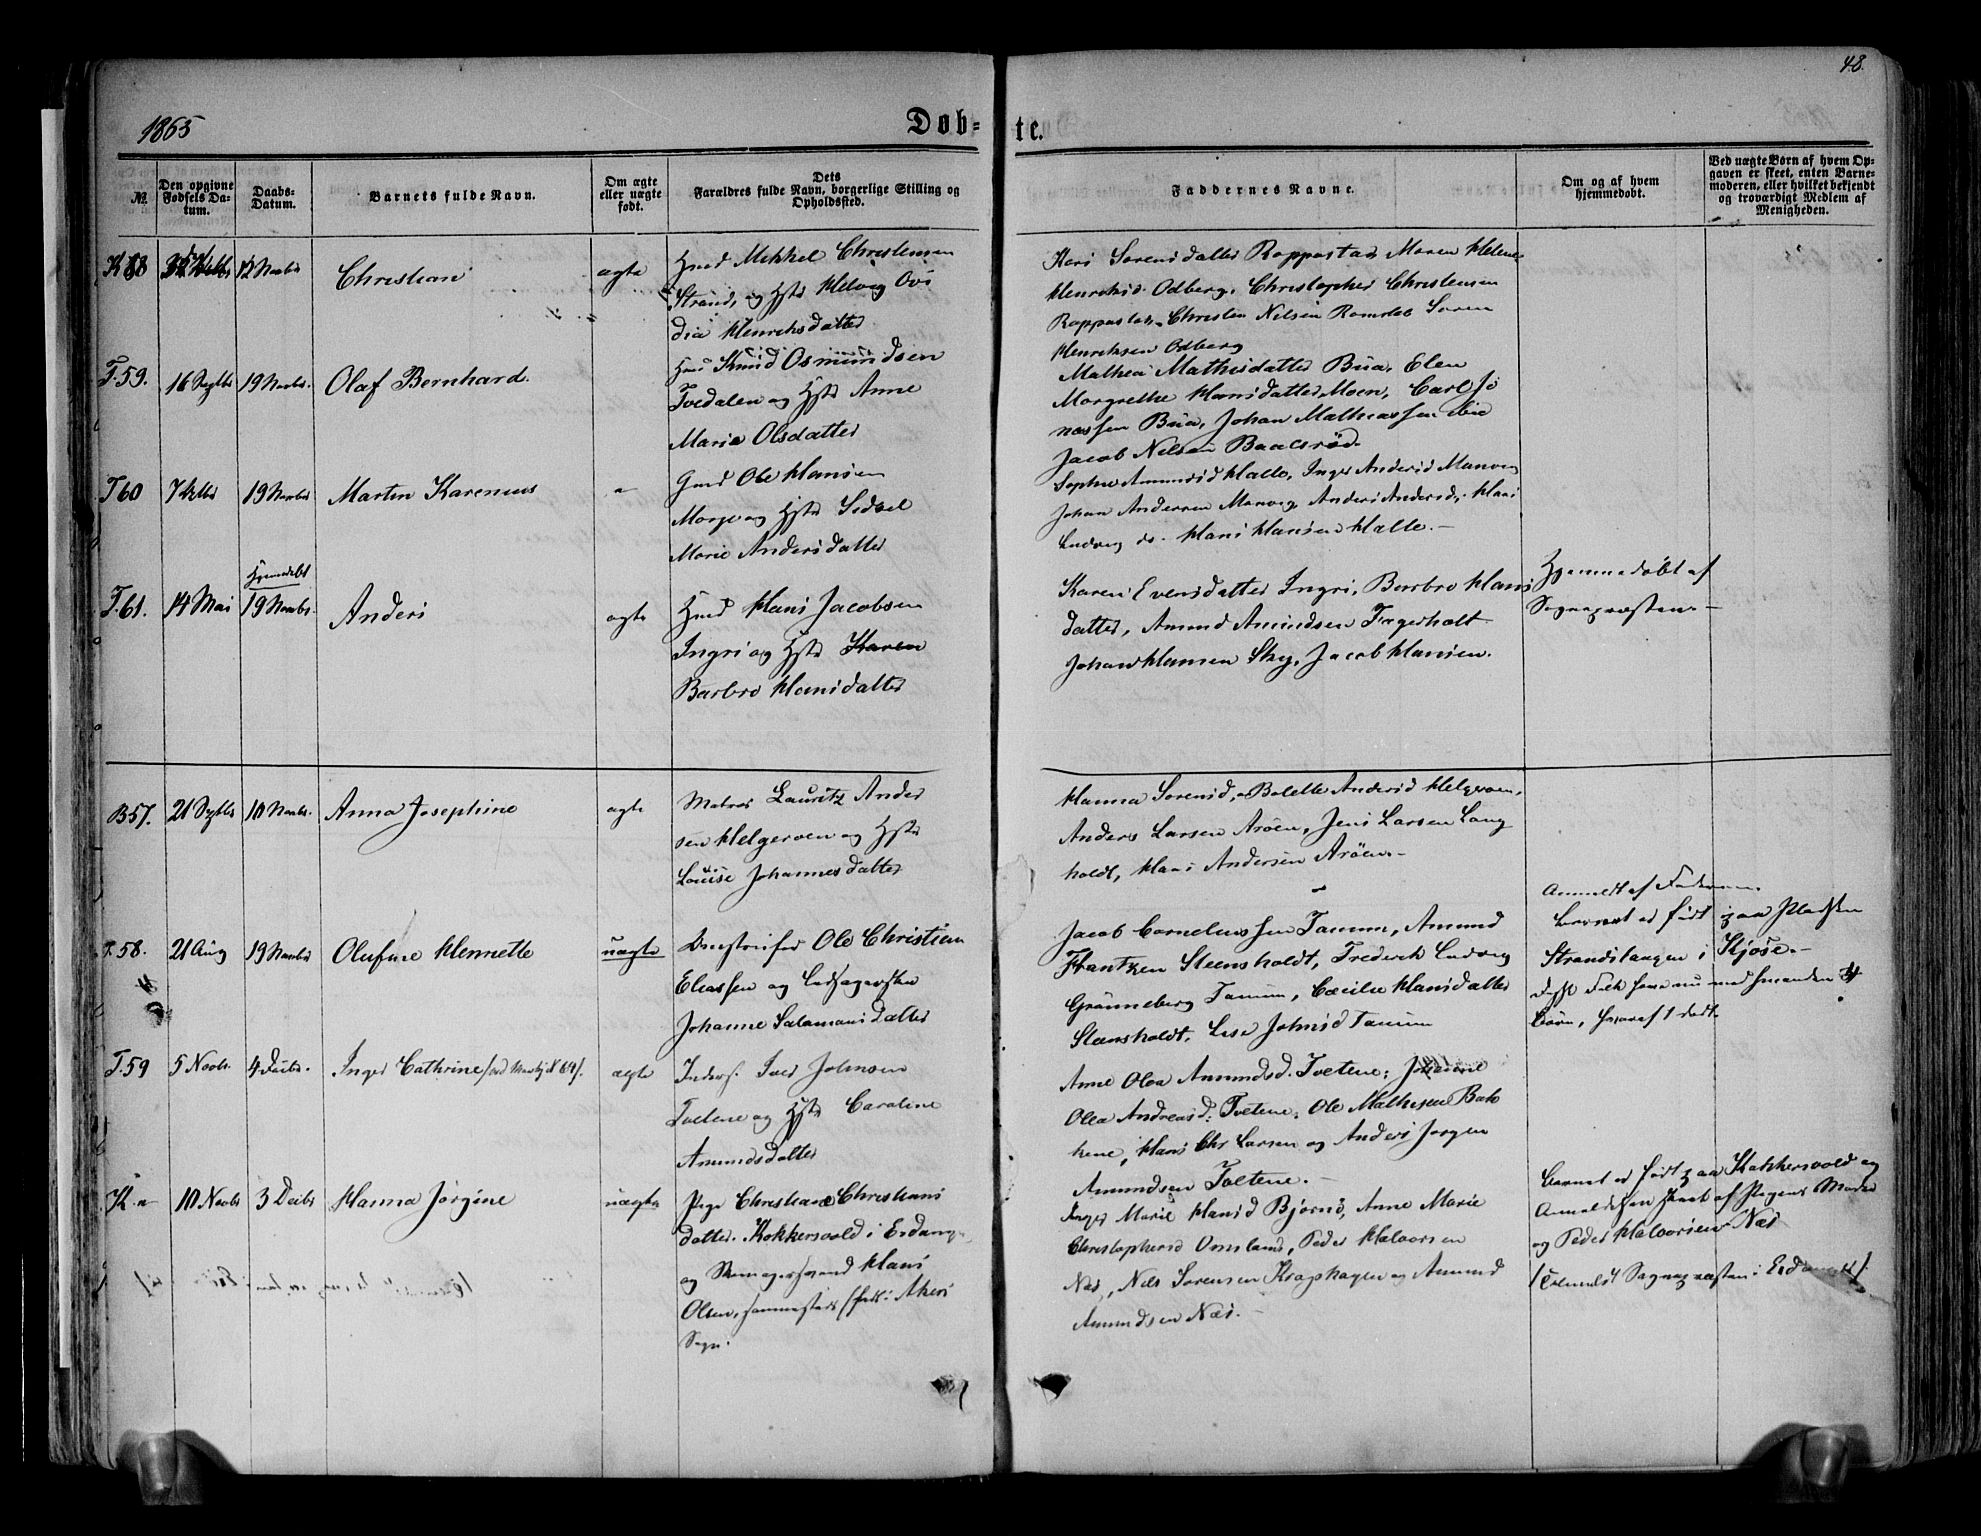 48.
1865
Døb-te.
№.
Den opgivne Fødsels Datum.
Daabs-Datum.
Barnets fulde Navn.
Om ægte eller uægte født.
Dets Forældres fulde Navn, borgerlige Stilling og Opholdssted.
Faddernes Navne.
Om og af hvem hjemmedøbt.
Ved uægte Børn af hvem Opgaven er skeet, enten Barnemoderen, eller hvilket bekjendt og troværdigt Medlem af Menigheden.
12 Novbr
Christian
ægte
Hmd Mikkel Christensen
Strand, og Hstr Helvig Ovi
dia Henrichsdatter
Kari Sørensdatter Roppestad Maren Helene
Henriksd. Odberg, Christopher Christensen
Roppestad Christen Nilsen Søren
Henriksen Odberg
T.59.
16 Septbr
19 Novbr.
Olaf Bernhard.
Hmd Knud Osmundsen
Tvedalen og Hstr Anne
Marie Olsdatter
Mathea Mathisdatter Bua, Elen
Margrethe Hansdatter Moen, Carl Jo
nassen Bua, Johan Mathiassen
Jacob Nilsen
T60
7
19 Novbr
Martin Karenius
"
Gmd Ole Hansen
og Hstr Sidsel
Marie Andersdatter
Sophie Amundsd Halle, Inger Andersd Manvig
Johan Andersen Manvig, Anders Andersd, Hans
Ludvig do. Hans Hansen Halle.
T.61.
14 Mai
Hjemmedøbt
19 Novbr.
Anders
ægte
Hmd Hans Jacobsen
Ingri og Hstr Karen
Barbro Hansdatter
Karen Evensdatter Ingri, Barbro Hans
datter, Amund Amundsen Fagerholt
Johan Hansen Sky, Jacob Hansen.
Hjemmedøbt af
Sognepræsten.
B57.
21 Septbr
10 Novbr.
Anna Josephine
ægte
Matros Lauritz Ander
sen Helgeroen og Hstr
Louise Johannesdatter
Hanna Sørensd, Bolette Andersd Helgeroen,
Anders Larsen Arøen, Jens Larsen Lang
holdt, Hans Andersen Arøen.
T.58.
21 Aug
19 Novbr
Olufine Hennette
uægte
Ole Christian
Eliassen og
Johanne Salamonsdatter
Jacob Corneliussen Tanum, Amund
Frantzen Steensholdt, Frederik Ludvig
Grønneberg Tanum, Cecilie Hansdatter
Steensholdt, Lise Johnsd Tanum
Anmeldt af Faderen.
Barnet er født paa Pladsen
Strandstangen i Kjose.
Børn, hvoraf 1 dødt.
T.59
5 Novbr.
4 Decbr.
Inger Cathrine
ægte
Inders. Iver Johnsen
Tvetene og Hstr Caroline
Amundsdatter
Anne Olea Amundsd. Tvetene, Johanne
Olea Andreasd: Tvetene, Ole Mathisen Bak
kene, Hans Chr Larsen og Anders Jørgen
Amundsen Tvetene.
K.
10 Novbr
3 Decbr
Hanna Jørgine
uægte
Pige Christiane Christians
datter. Kokkersvold i Eidanger
og Skomagersvend Hans
Olsen, sammesteds født i Akers
Sogn.
Inger Marie Hansd Bjørnø, Anne Marie
Christophersd Omsland, Peder Halvorsen
Næs, Nils Sørensen Kraphagen og Amund
Amundsen Næs.
Barnet er født paa Kokkersvold og
Anmeldelsen skeet af Pigens Moder
og Peder Halvorsen Næs
Sognepræsten i Eidanger